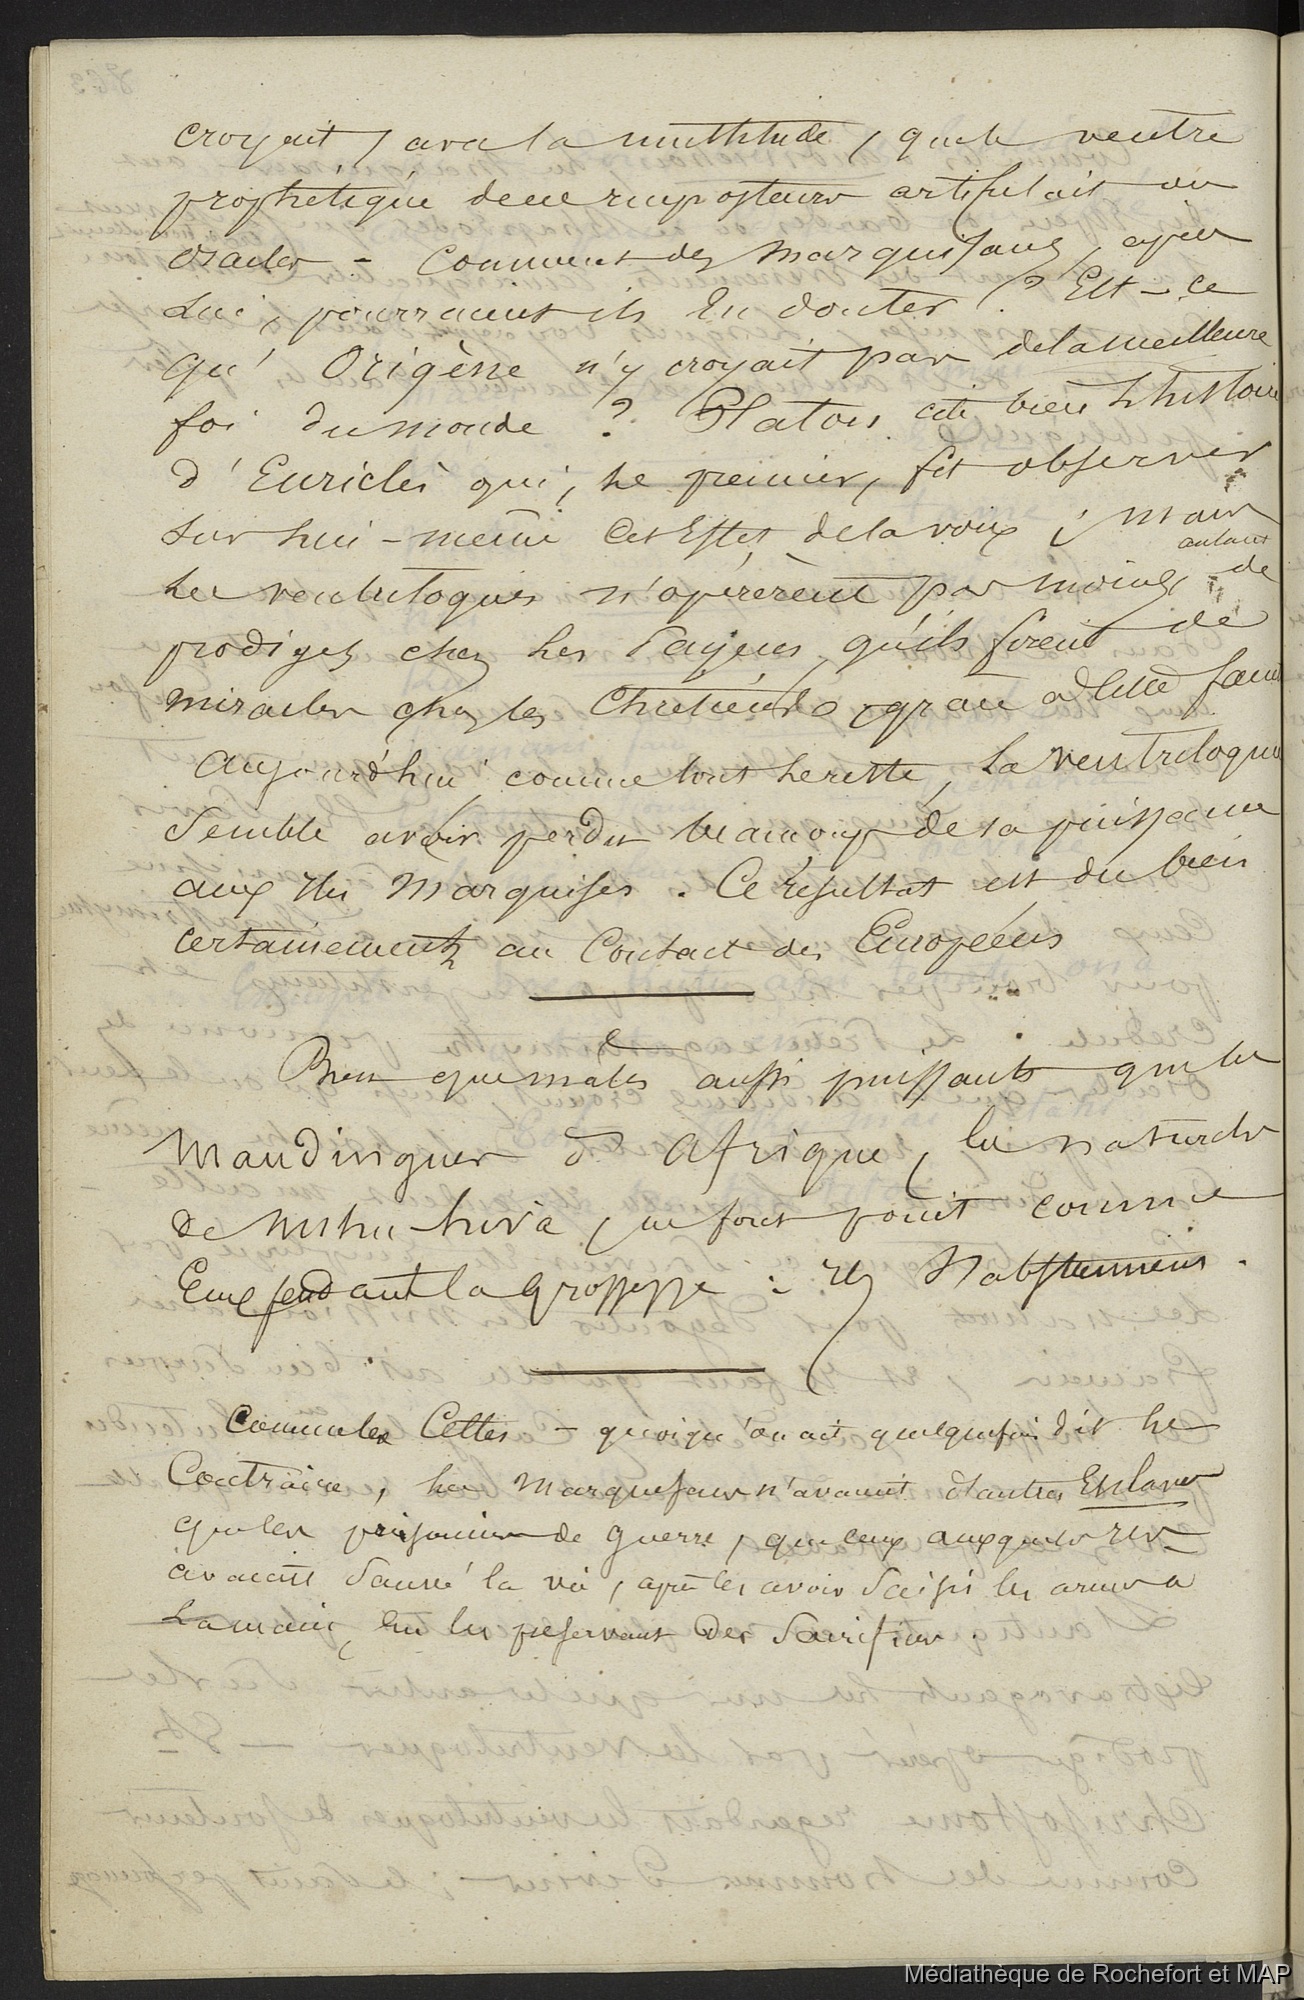 croyait, avec la multitude, que le ventre
prophétique de ces imposteurs articulait un
oracles - Comment des Marquisans, après
Lui, pourraient ils En douter ? Est-ce
qu' Origène n'y croyait pas de la meilleure
foi du monde ? Platon cite bien l'histoire
d'Euriclès qui, le premier, fit observer
sur lui-même ces Effets de la voix ; mais
les ventriloques n'opérèrent pas moins autant de
prodiges chez les Payens, qu'ils firent de
miracles chez les Chrétiens, grace à cette
Aujourd'hui, comme tout le reste, la ventriloquie
Semble avoir perdu beaucoup de sa puissance
aux Iles Marquises. Ce résultat est du bien
certainement au Contact des Européens
Bien que mâles aussi puissants que les
Mandingues d'Afrique, les naturels
de nuku-hiva, ne font point comme
Eux pendant la grossesse : ils s'abstiennent.
Comme les Celtes - quoiqu'on ait quelquefois dit le
Contraire, les Marquisans n'avaient d'autres Esclaves
que les prisonniers de guerre, que ceux auxquels ils
avaient sauvé la vie, après les avoir saisis les armes à
La main, en les préservant des Sacrifices.
Médiathèque de Rochefort et MAP